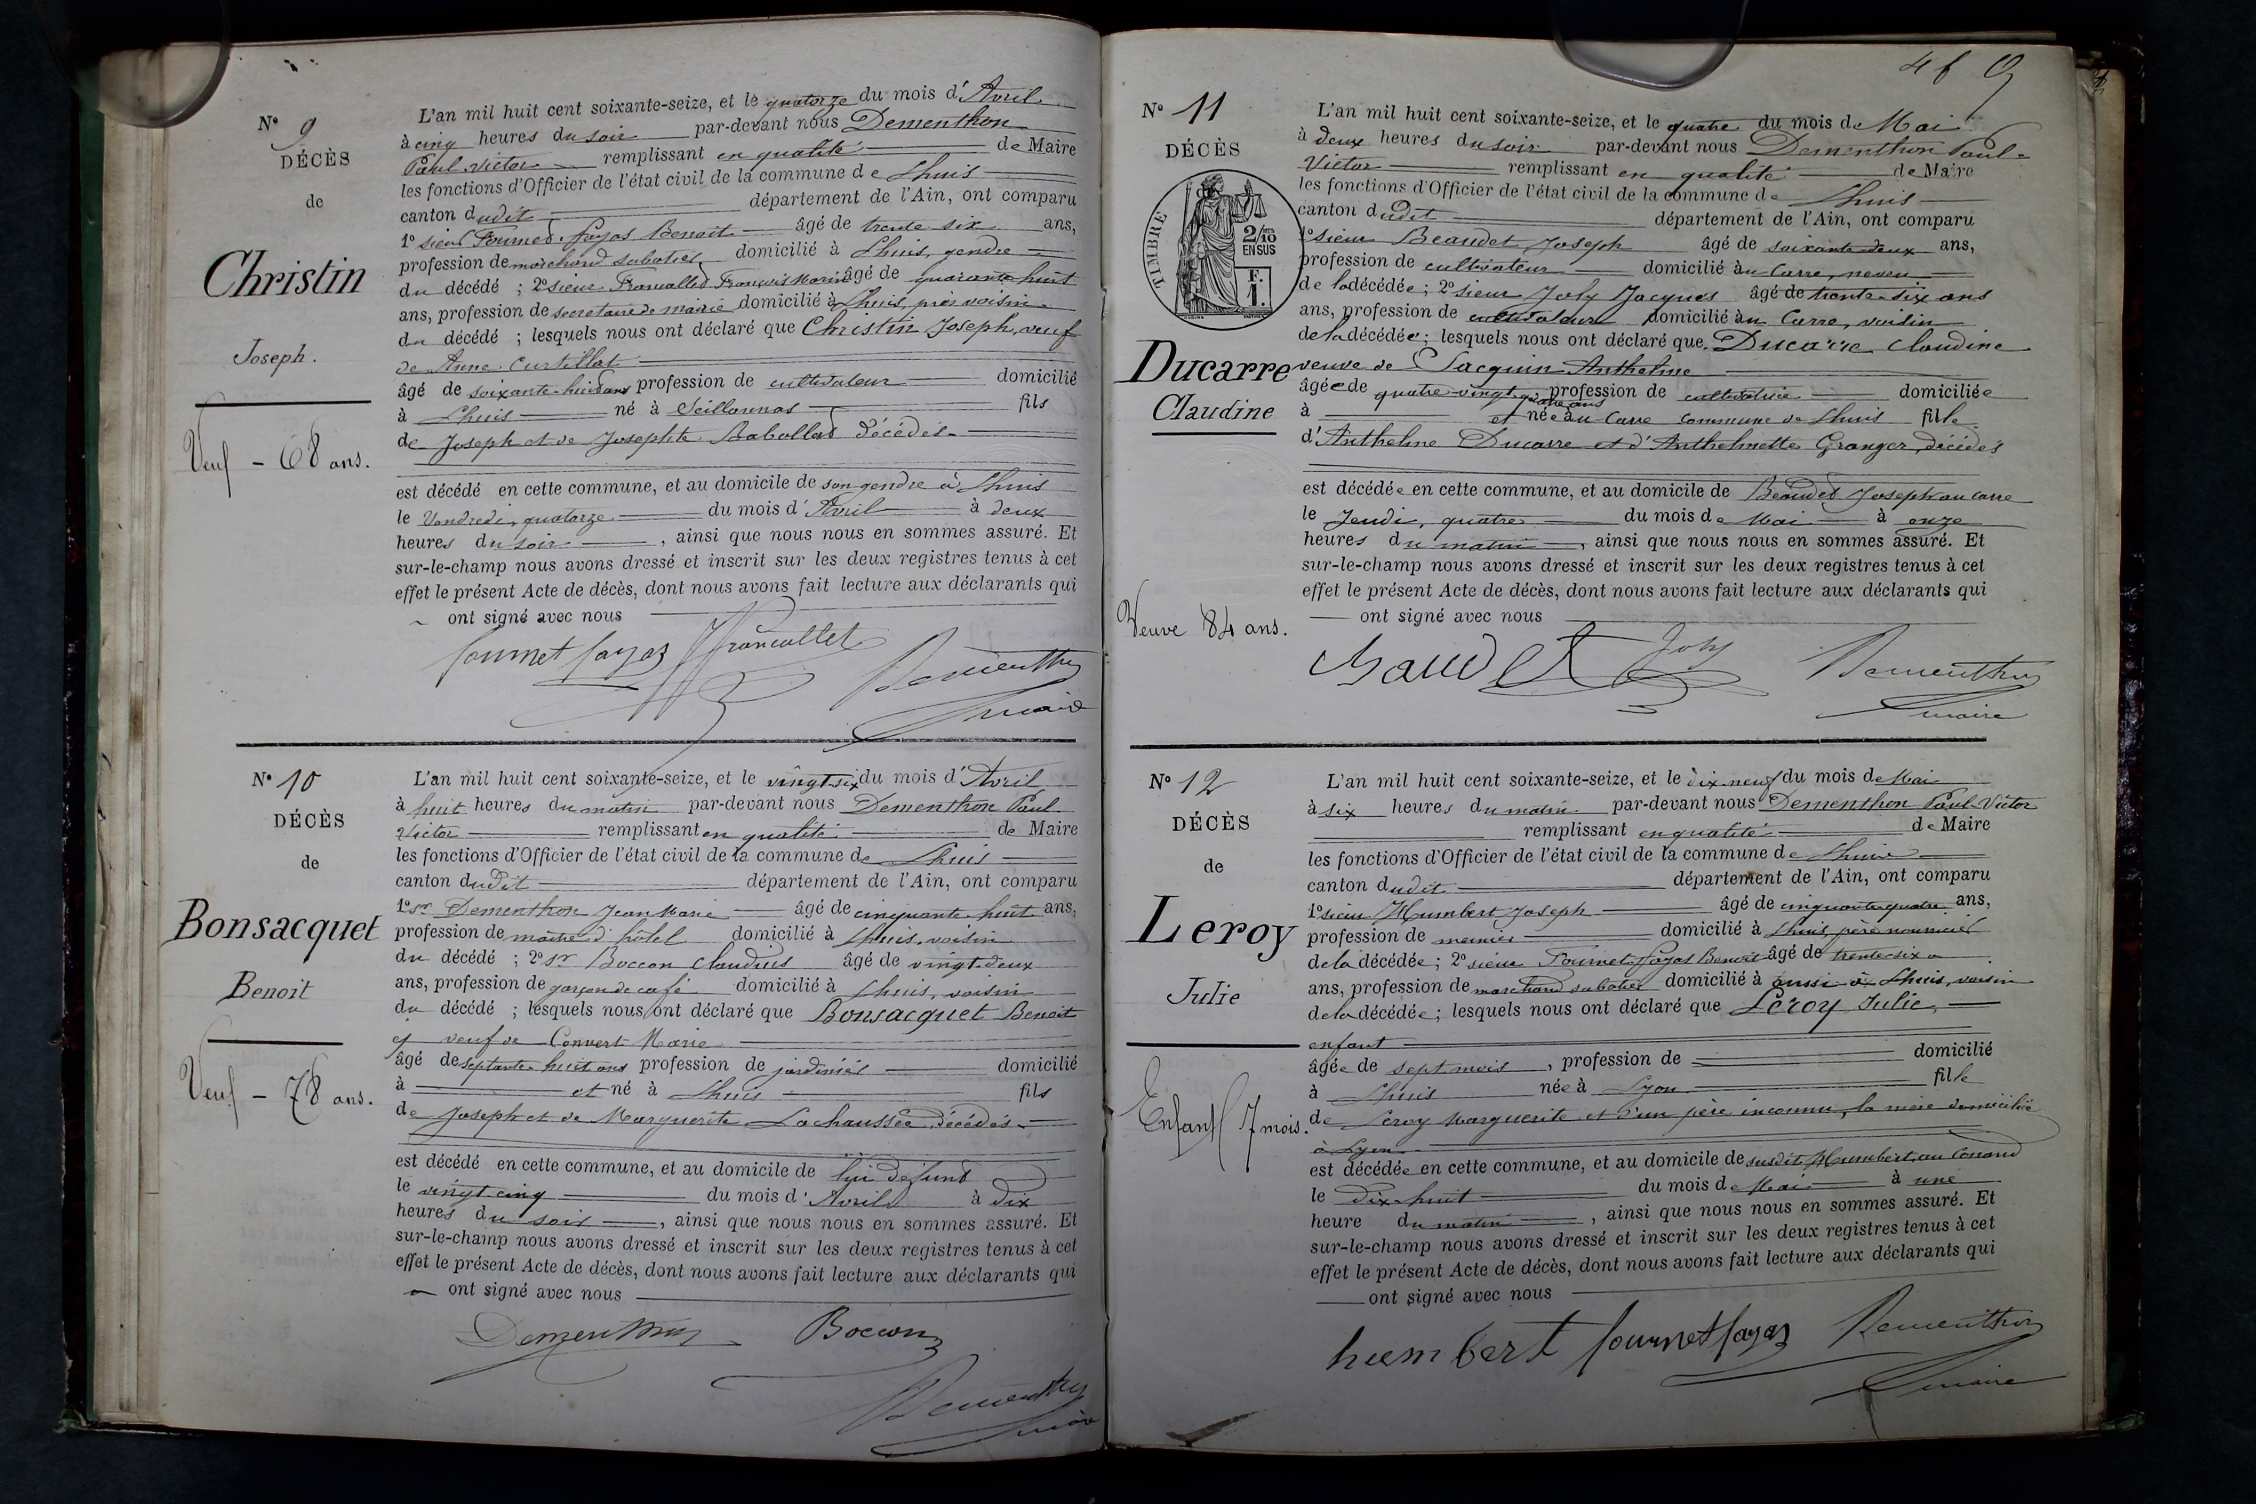 N° 9
DÉCÈS
de
Christin
Joseph.
Veuf - 68 ans.
L'an mil huit cent soixante-seize, et le quatorze du mois d'Avril
à cinq heures du soir par-devant nous Dementhon
Paul Victor remplissant en qualité de Maire
les fonctions d'Officier de l'état civil de la commune de Lhuis
canton dudit département de l'Ain, ont comparu
1° sieur Fournet-Fayas Benoit âgé de trente six ans,
profession de marchand sabotier domicilié à Lhuis, gendre
du décédé ; 2° sieur Francallet François Marin âgé de quarante huit
ans, profession de secrétaire de mairie domicilié à Lhuis, près voisin
du décédé ; lesquels nous ont déclaré que Christin Joseph, veuf
de Anne Curtillat
âgé de soixante-huit ans profession de cultivateur domicilié
à Lhuis né à Seillonnas fils
de Joseph et de Josephte Babollat décédés
est décédé en cette commune, et au domicile de son gendre à Lhuis
le Vendredi, quatorze du mois d'Avril à deux
heures du soir , ainsi que nous nous en sommes assuré. Et
sur-le-champ nous avons dressé et inscrit sur les deux registres tenus à cet
effet le présent Acte de décès, dont nous avons fait lecture aux déclarants qui
ont signé avec nous
fournet fayas Francallet Dementhon
maire
N° 10
DÉCÈS
de
Bonsacquet
Benoit
Veuf - 78 ans.
L'an mil huit cent soixante-seize, et le vingt-six du mois d'Avril
à huit heures du matin par-devant nous Dementhon Paul
Victor remplissant en qualité de Maire
les fonctions d'Officier de l'état civil de la commune de Lhuis
canton dudit département de l'Ain, ont comparu
1° Sr Dementhon Jean Marie âgé de cinquante-huit ans,
profession de maître d'hôtel domicilié à Lhuis, voisin
du décédé ; 2° Sr Boccon Claudius âgé de vingt-deux
ans, profession de garçon de café domicilié à Lhuis, voisin
du décédé ; lesquels nous ont déclaré que Bonsacquet Benoit
veuf de Convert Marie
âgé de septante-huit ans profession de jardinier domicilié
à et né à Lhuis fils
de Joseph et de Marguerite Lachaussée, décédés
est décédé en cette commune, et au domicile de lui défunt
le vingt cinq du mois d'Avril à dix
heures du soir , ainsi que nous nous en sommes assuré. Et
sur-le-champ nous avons dressé et inscrit sur les deux registres tenus à cet
effet le présent Acte de décès, dont nous avons fait lecture aux déclarants qui
ont signé avec nous
Dementhon Boccon
Dementhon
maire
4 f 9
N° 11
DÉCÈS
TIMBRE
2/10
EN SUS
F.
1.
Ducarre
Claudine
Veuve 84 ans.
L'an mil huit cent soixante-seize, et le quatre du mois de Mai
à deux heures du soir par-devant nous Dementhon Paul-
Victor remplissant en qualité de Maire
les fonctions d'Officier de l'état civil de la commune de Lhuis
canton dudit département de l'Ain, ont comparu
1° sieur Beaudet Joseph âgé de soixante-deux ans,
profession de cultivateur domicilié au Carre, neveu
de la décédée ; 2° sieur Joly Jacques âgé de trente-six ans
ans, profession de cultivateur domicilié au Carre, voisin
de la décédée ; lesquels nous ont déclaré que Ducarre Claudine
veuve de Jacquin Anthelme
âgée de quatre-vingt-quatre ans profession de cultivatrice domiciliée
à et née au Carre commune de Lhuis fille
d'Anthelme Ducarre et d'Anthelmette Granger, décédés
est décédée en cette commune, et au domicile de Beaudet Joseph au Carre
le Jeudi, quatre du mois de Mai à onze
heures du matin , ainsi que nous nous en sommes assuré. Et
sur-le-champ nous avons dressé et inscrit sur les deux registres tenus à cet
effet le présent Acte de décès, dont nous avons fait lecture aux déclarants qui
ont signé avec nous
Baudet Joly Dementhon
maire
N° 12
DÉCÈS
de
Leroy
Julie
Enfant 7 mois.
L'an mil huit cent soixante-seize, et le dix-neuf du mois de Mai
à six heures du matin par-devant nous Dementhon Paul-Victor
remplissant en qualité de Maire
les fonctions d'Officier de l'état civil de la commune de Lhuis
canton dudit département de l'Ain, ont comparu
1° sieur Humbert Joseph âgé de cinquante-quatre ans,
profession de meunier domicilié à Lhuis, père nourricier
de la décédée ; 2° sieur Fournet-Fayas Benoit âgé de trente-six
ans, profession de marchand sabotier domicilié à aussi à Lhuis, voisin
de la décédée ; lesquels nous ont déclaré que Leroy Julie,
enfant
âgée de sept mois , profession de domicilié
à Lhuis née à Lyon fille
de Leroy Marguerite et d'un père inconnu, la mère domiciliée
à Lyon
est décédée en cette commune, et au domicile de susdit Humbert, au Conand
le dix-huit du mois de Mai à une
heure du matin , ainsi que nous nous en sommes assuré. Et
sur-le-champ nous avons dressé et inscrit sur les deux registres tenus à cet
effet le présent Acte de décès, dont nous avons fait lecture aux déclarants qui
ont signé avec nous
humbert fournet fayas Dementhon
maire